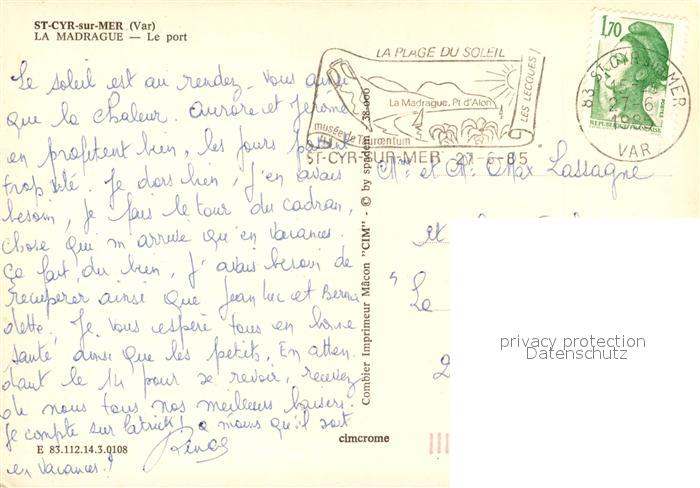 ST-CYR-sur-MER (Var)
LA MADRAGUE — Le port
Le soleil est au rendez-vous ainsi
que la chaleur. Aurore et Jérôme
en profitent bien, les jours passent
trop vite. Je dors bien, j'en avais
besoin, je fais le tour du cadran,
chose qui m'arrive qu'en vacances.
Ça fait du bien, j'avais besoin de
récupérer ainsi que Jean Luc et Berna
dette. Je vous espère tous en bonne
santé ainsi que les petits. En atten
dant le 14 pour se revoir, recevez
de nous tous nos meilleurs baisers.
Je compte sur Patrick! à moins qu'il soit
en vacances!
E 83.112.14.3.0108
cimcrome
Combier Imprimeur Mâcon "CIM" - © by spadem - 38-000
LA PLAGE DU SOLEIL
LES LECQUES!
La Madrague. Pt d'Alon
musée de Tauroentum
ST-CYR-SUR-MER 27-6-85
1,70
REPUBLIQUE FRANÇAISE
POSTES
83 ST-CYR-S-MER
27-6
VAR
Mr et Me Max Lassagne
et
Le
privacy protection
Datenschutz